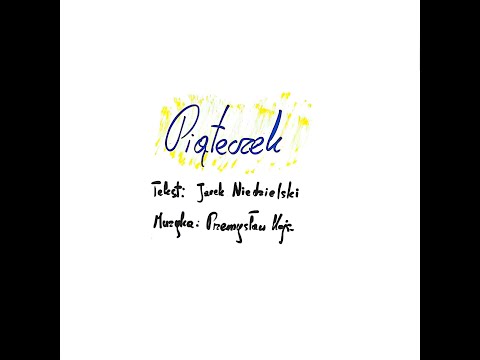 Piąteczek
Tekst: Jarek Niedzielski
Muzyka: Przemysław